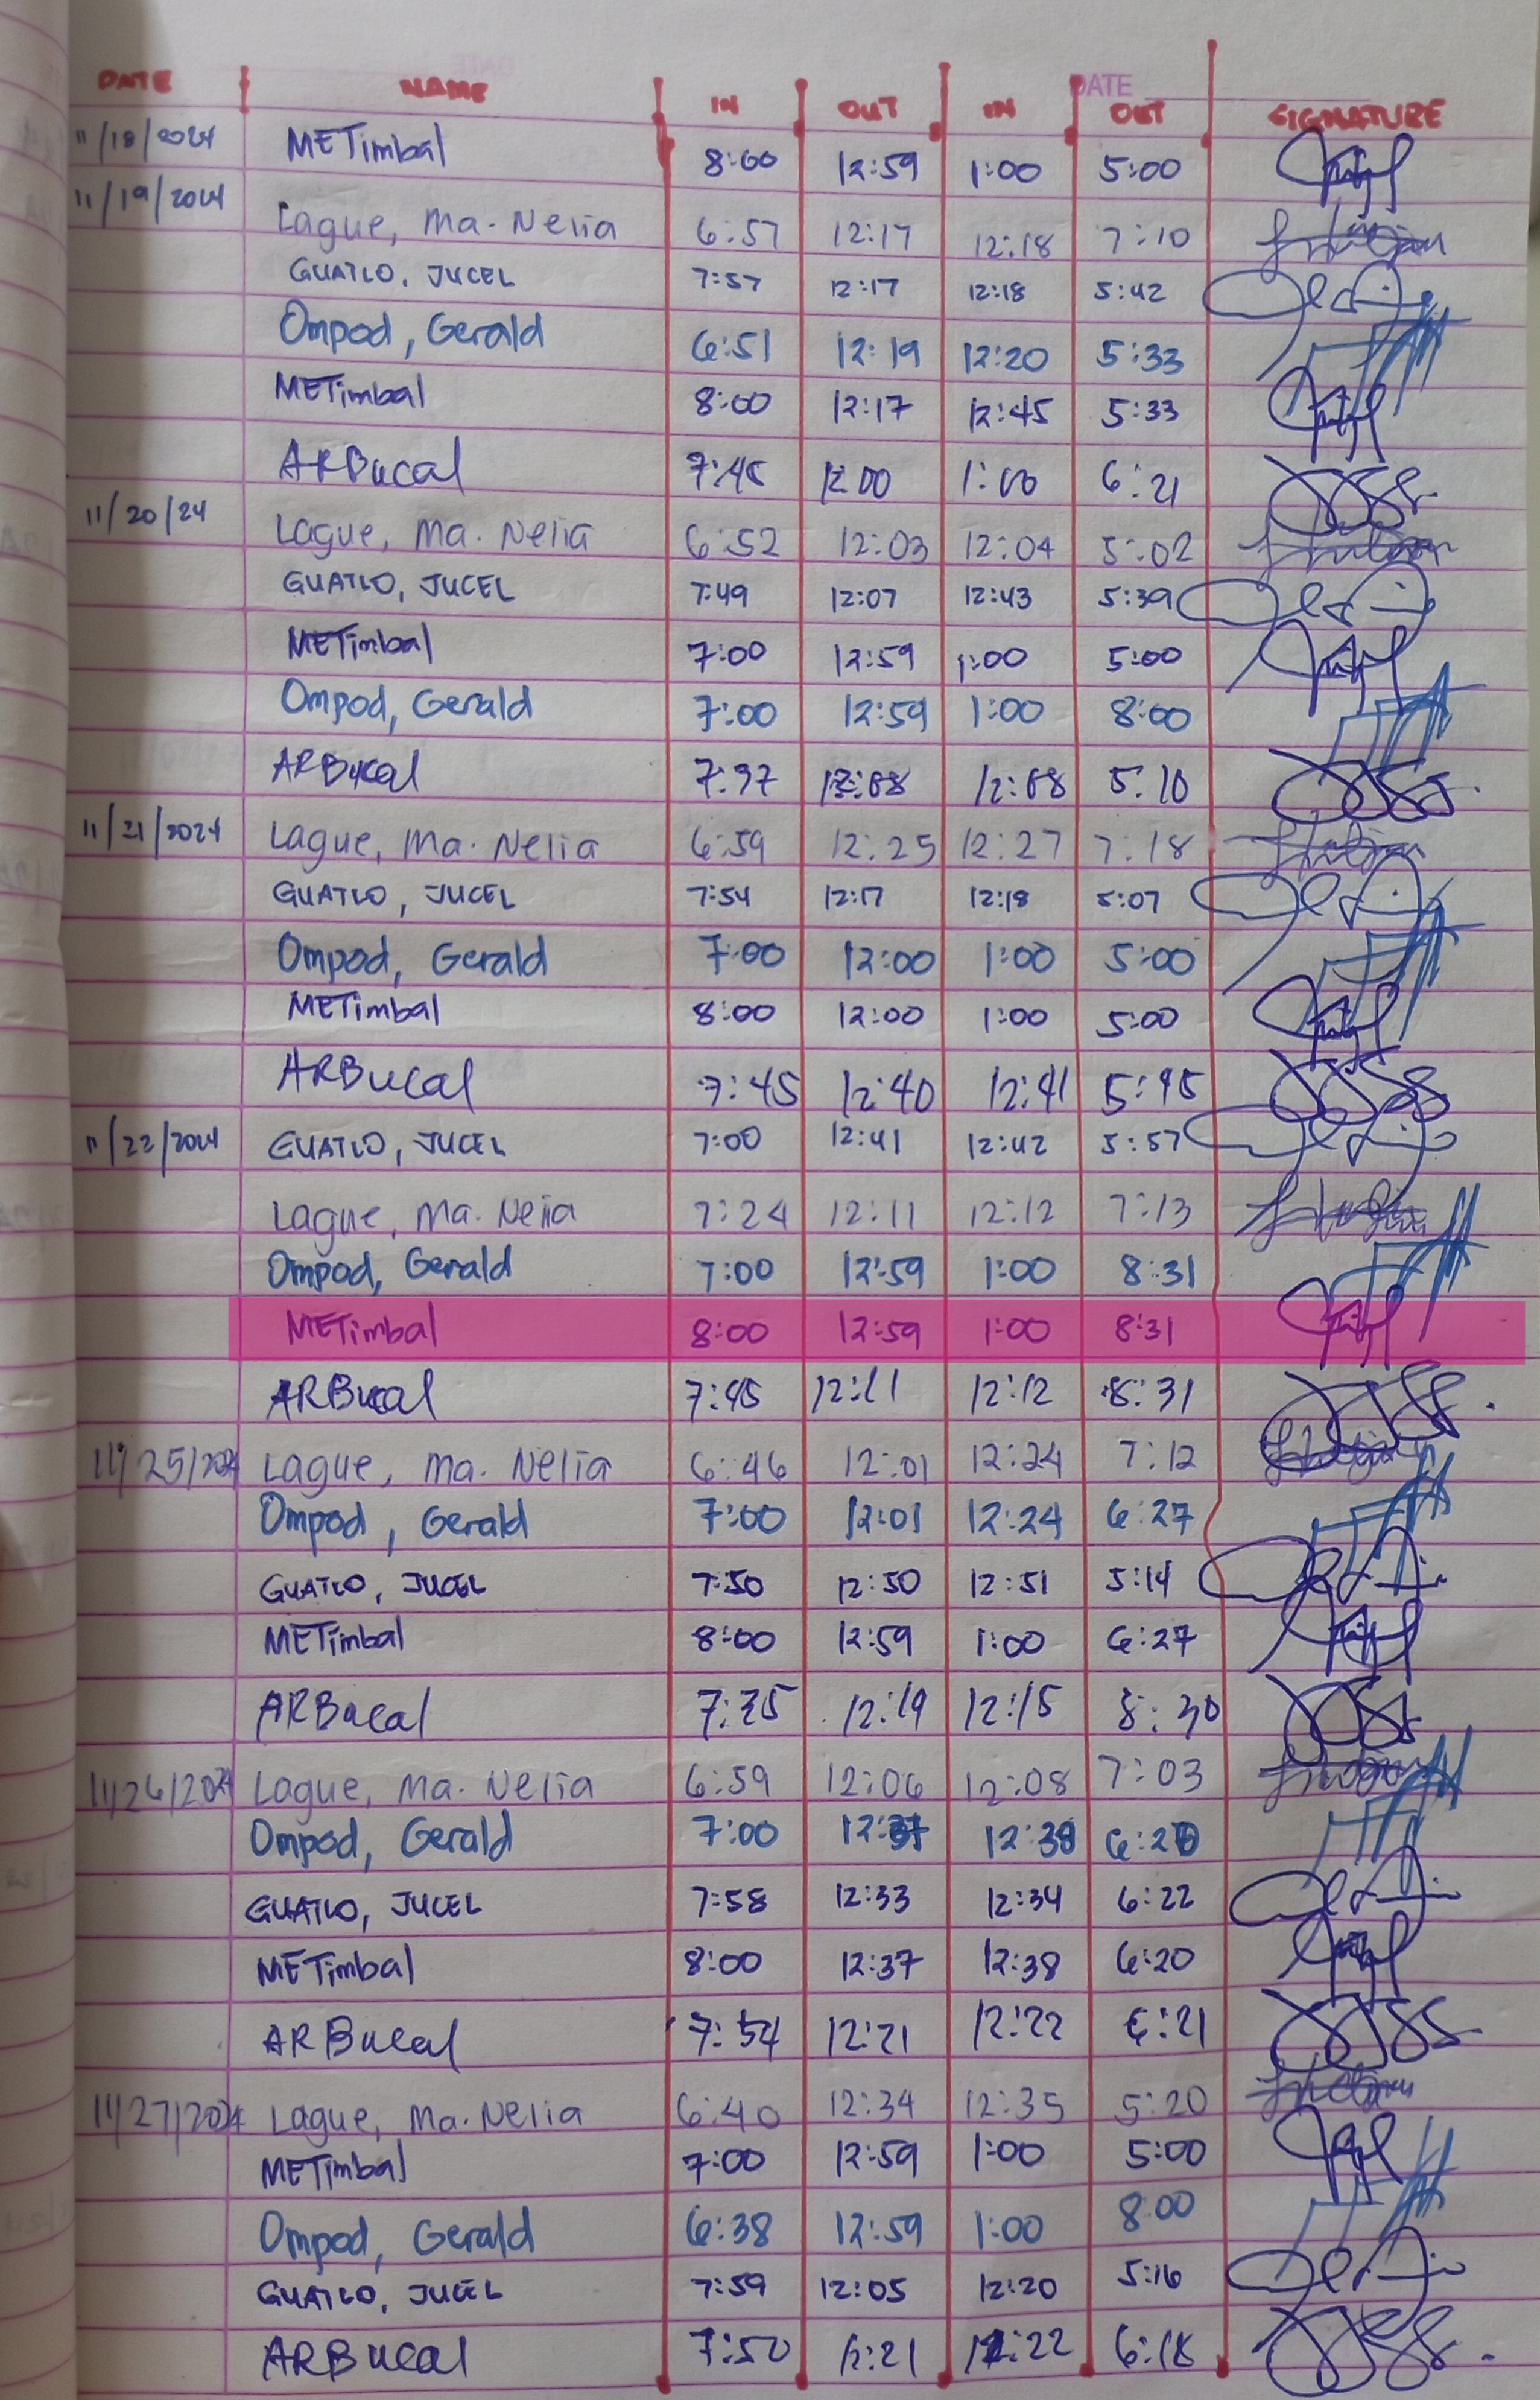 DATE
DATE NAME IN OUT IN OUT SIGNATURE
11/18/2024 METimbal 8:00 12:59 1:00 5:00
11/19/2024 Lague, Ma. Nelia 6:57 12:17 12:18 7:10
GUATLO, JUCEL 7:57 12:17 12:18 5:42
Ompod, Gerald 6:51 12:19 12:20 5:33
METimbal 8:00 12:17 12:45 5:33
ARBucal 7:45 12:00 1:00 6:21
11/20/24 Lague, Ma. Nelia 6:52 12:03 12:04 5:02
GUATLO, JUCEL 7:49 12:07 12:43 5:39
METimbal 7:00 12:59 1:00 5:00
Ompod, Gerald 7:00 12:59 1:00 8:00
ARBucal 12:08 5:10
11/21/2024 Lague, Ma. Nelia 6:59 12:25 12:27 7:18
GUATLO, JUCEL 7:54 12:17 12:18 5:07
Ompod, Gerald 7:00 12:00 1:00 5:00
METimbal 8:00 12:00 1:00 5:00
ARBucal 7:45 12:40 12:41 5:45
11/22/2024 GUATLO, JUCEL 7:00 12:41 12:42 5:57
Lague, Ma. Nelia 7:24 12:11 12:12 7:13
Ompod, Gerald 7:00 12:59 1:00 8:31
METimbal 8:00 12:59 1:00 8:31
ARBucal 7:45 12:11 12:12 8:31
11/25/2024 Lague, Ma. Nelia 6:46 12:01 12:24 7:12
Ompod, Gerald 7:00 12:01 12:24 6:27
GUATLO, JUCEL 7:50 12:50 12:51 5:14
METimbal 8:00 12:59 1:00 6:27
ARBucal 12:15 8:30
11/26/2024 Lague, Ma. Nelia 6:59 12:06 12:08 7:03
Ompod, Gerald 7:00 12:37 12:38 6:20
GUATLO, JUCEL 7:58 12:33 12:34 6:22
METimbal 8:00 12:37 12:38 6:20
ARBucal 7:54 12:21 12:22 6:21
11/27/2024 Lague, Ma. Nelia 6:40 12:34 12:35 5:20
METimbal 7:00 12:59 1:00 5:00
Ompod, Gerald 6:38 12:59 1:00 8:00
GUATLO, JUCEL 7:59 12:05 12:20 5:16
ARBucal 7:50 12:21 12:22 6:18